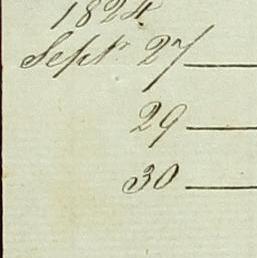 1824
Septr 27
29
30